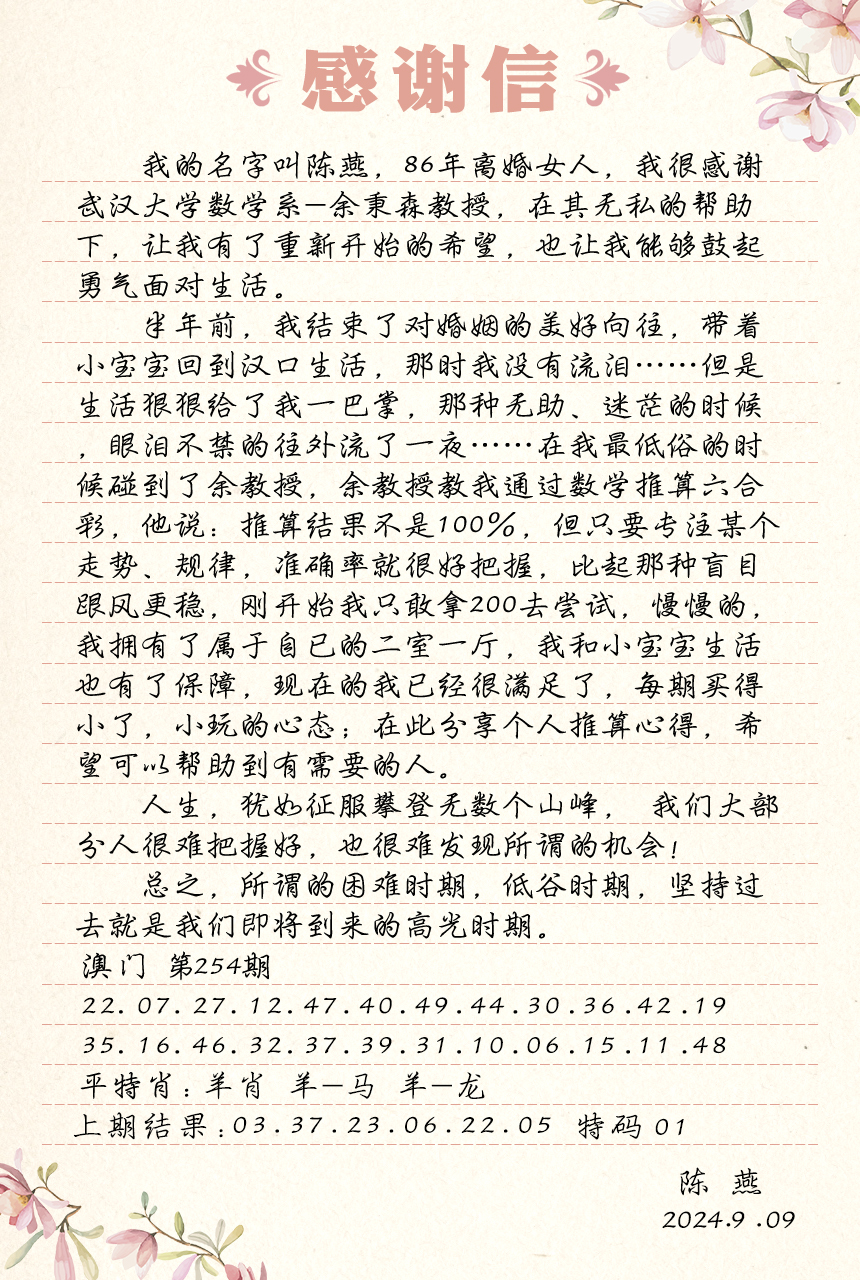 感谢信
我的名字叫陈燕，86年离婚女人，我很感谢
武汉大学数学系—余秉森教授，在其无私的帮助
下，让我有了重新开始的希望，也让我能够鼓起
勇气面对生活。
半年前，我结束了对婚姻的美好向往，带着
小宝宝回到汉口生活，那时我没有流泪……但是
生活狠狠给了我一巴掌，那种无助、迷茫的时候
，眼泪不禁的往外流了一夜……在我最低俗的时
候碰到了余教授，余教授教我通过数学推算六合
彩，他说：推算结果不是100%，但只要专注某个
走势、规律，准确率就很好把握，比起那种盲目
跟风更稳，刚开始我只敢拿200去尝试，慢慢的，
我拥有了属于自已的二室一厅，我和小宝宝生活
也有了保障，现在的我已经很满足了，每期买得
小了，小玩的心态；在此分享个人推算心得，希
望可以帮助到有需要的人。
人生，犹如征服攀登无数个山峰， 我们大部
分人很难把握好，也很难发现所谓的机会！
总之，所谓的困难时期，低谷时期，坚持过
去就是我们即将到来的高光时期。
澳门 第254期
22.07.27.12.47.40.49.44.30.36.42.19
35.16.46.32.37.39.31.10.06.15.11.48
平特肖：羊肖 羊—马 羊—龙
上期结果：03.37.23.06.22.05 特码 01
陈 燕
2024.9.09